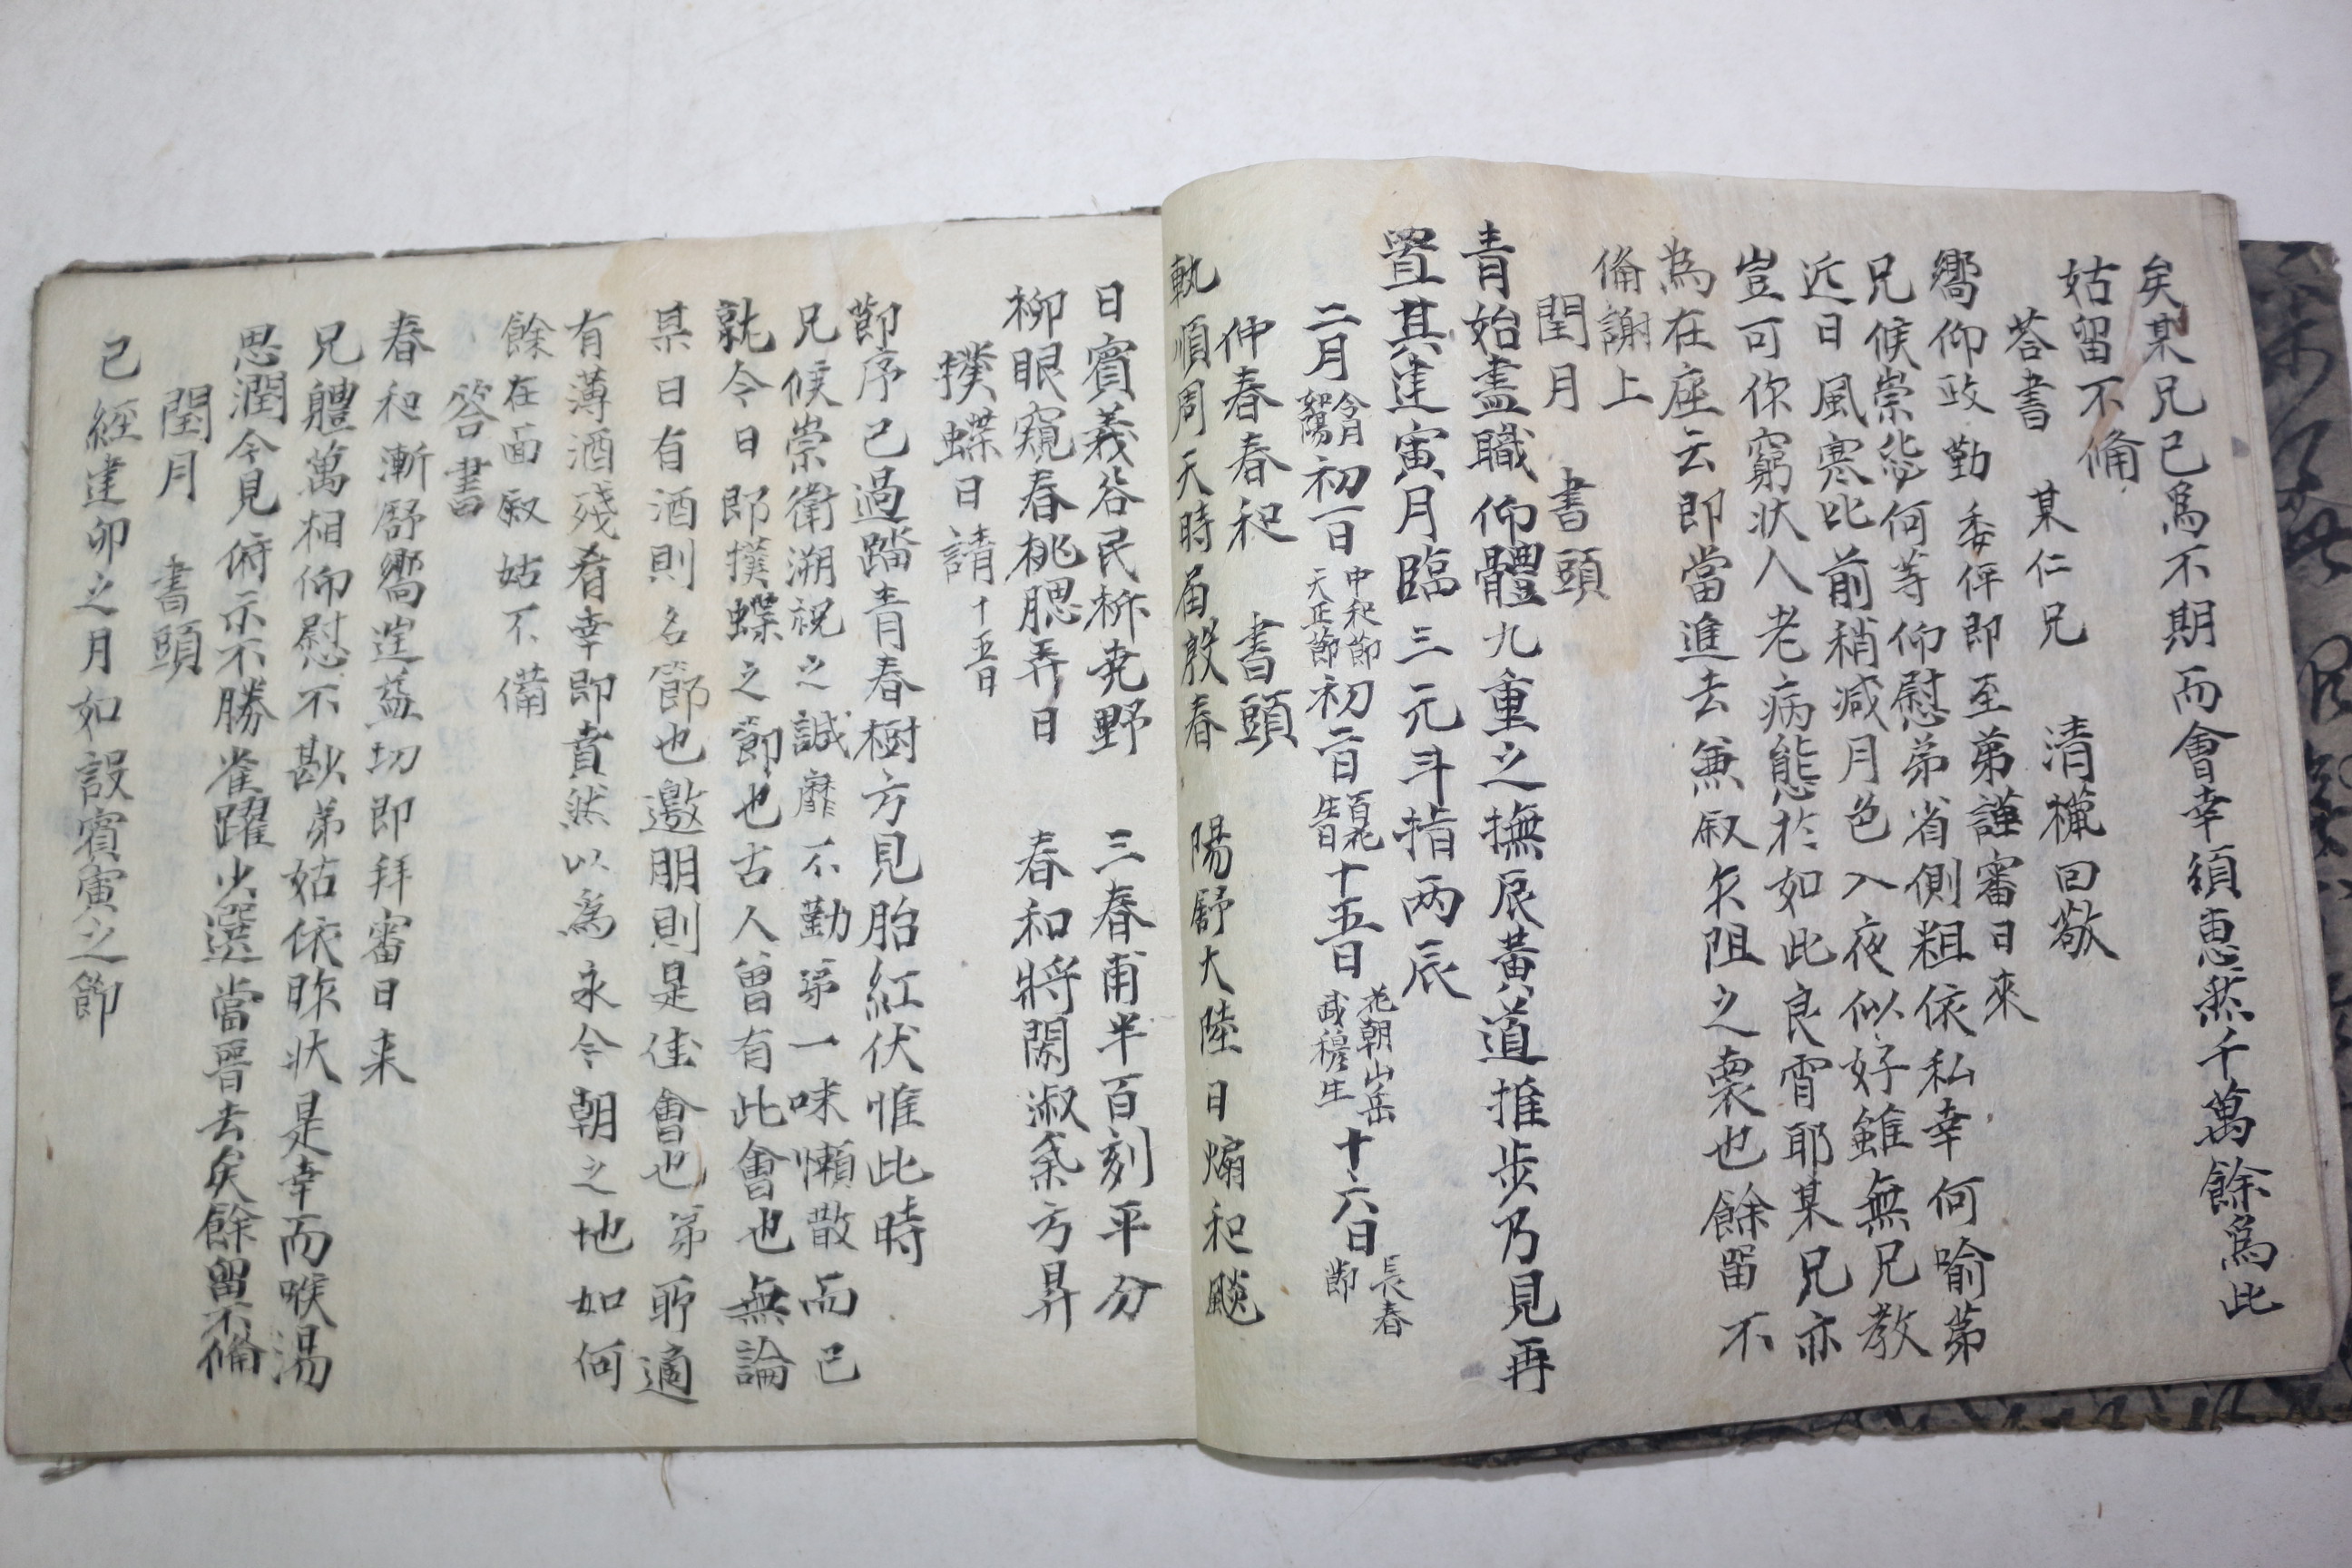 矣某兄已爲不期而會幸須惠然千萬餘爲此
姑留不俻
荅書 某仁兄 清欖回敬
嚮仰政勤委伻即至弟謹審日來
兄候崇毖何等仰慰弟省側粗依私幸何喻弟
近日風寒比前稍減月色入夜似好雖無兄教
豈可你窮狀人老病態於如此良宵耶某兄亦
為在座云即當進去兼叙久阻之裏也餘留不
俻謝上
閏月 書頭
青始盡職仰體九重之撫辰黃道推步乃見再
置其建寅月臨三元斗指两辰
二月 令月 如陽 初一日 中和節 天正節 初二日 百花生日 十五日 花朝山岳 誠穆生 十六日 長春節
仲春春和 書頭
執順周天時届殷春 陽舒大陸日煽和颷
日賓羲谷民柝尭野 三春甫半百刻平分
柳眼窺春桃腮弄日 春和將闌淑氣方昇
撲蝶日請 十五日
節序已過踏青春樹方見胎紅伏惟此時
兄候崇衛溯祝之誠靡不勤弟一味懶散而已
就今日即撲蝶之節也古人曾有此會也無論
某日有酒則名節也邀朋則是佳會也弟所適
有薄酒殘肴幸即賁然以爲永今朝之地如何
餘在面叙姑不備
答書
春和漸舒嚮逞益切即拜審日来
兄軆萬相仰慰不尠弟姑依昨状是幸而喉湯
思潤今見俯示不勝雀躍少選當晋去矣餘留不俻
閏月 書頭
已經建卯之月如設賓寅之節